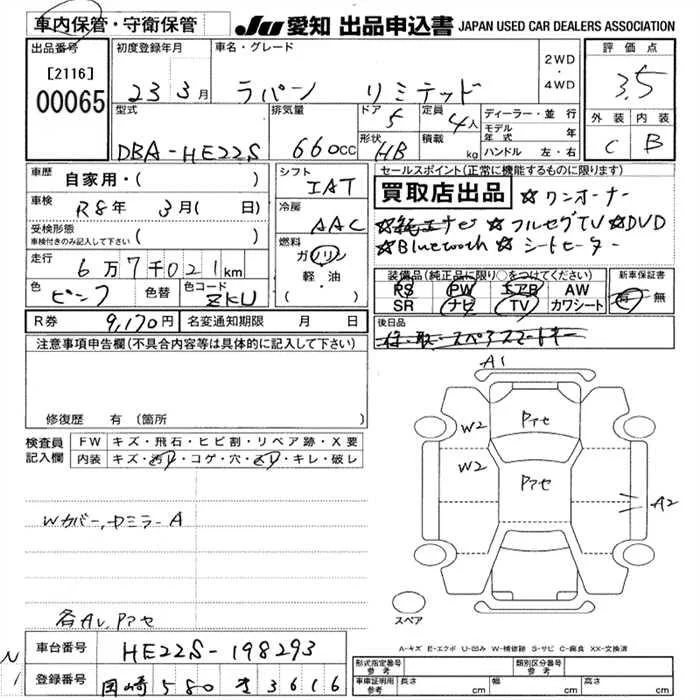 車内保管・守衛保管 JU 愛知 出品申込書 JAPAN USED CAR DEALERS ASSOCIATION
出品番号 初度登録年月 車名・グレード 評価点
[2116] 00065 23 3月 ラパン リミテッド 2WD・4WD 3.5
型式 排気量 ドア 5 定員 4人 ディーラー・並行 外装 内装
モデル年式 年
DBA-HE22S 660cc 形状 HB 積載 kg ハンドル 左・右 C B
車歴 自家用・( ) シフト セールスポイント(正常に機能するものに限ります)
IAT 買取店出品 ☆ワンオーナー
車検 R8年 3月( 日) 冷房
☆純正ナビ ☆フルセグTV ☆DVD
受検形態 車検付きのみ記入して下さい ( ) AAC
☆Bluetooth ☆シートヒーター
走行 6万7千021km 燃料 ガソリン・軽・油 ( )
装備品(純正品に限り○をつけてください) 新車保証書
色 ピンク 色替 色コード ZKU
PS PW エアB AW 有・無
SR ナビ TV カワシート
R券 9,170円 名変通知期限 月 日 後日品
注意事項申告欄(不具合内容等は具体的に記入して下さい)
A1
修復歴 有 (箇所 )
W2 Pアセ
検査員記入欄 FW キズ・飛石・ヒビ割・リペア跡・X要
内装 キズ・汚れ・コゲ・穴・スレ・キレ・破レ
W2 Pアセ
A2
Wカバー,中ミラーA
スペア
各AU,Pアセ
A-キズ E-エクボ U-凹み W-補修跡 S-サビ C-腐食 XX-交換済
車台番号 HE22S-198293
登録番号 岡崎 580 3616
形式指定番号 参考 類別区分番号 参考
車庫証明用 参考 長さ cm 幅 cm 高さ cm